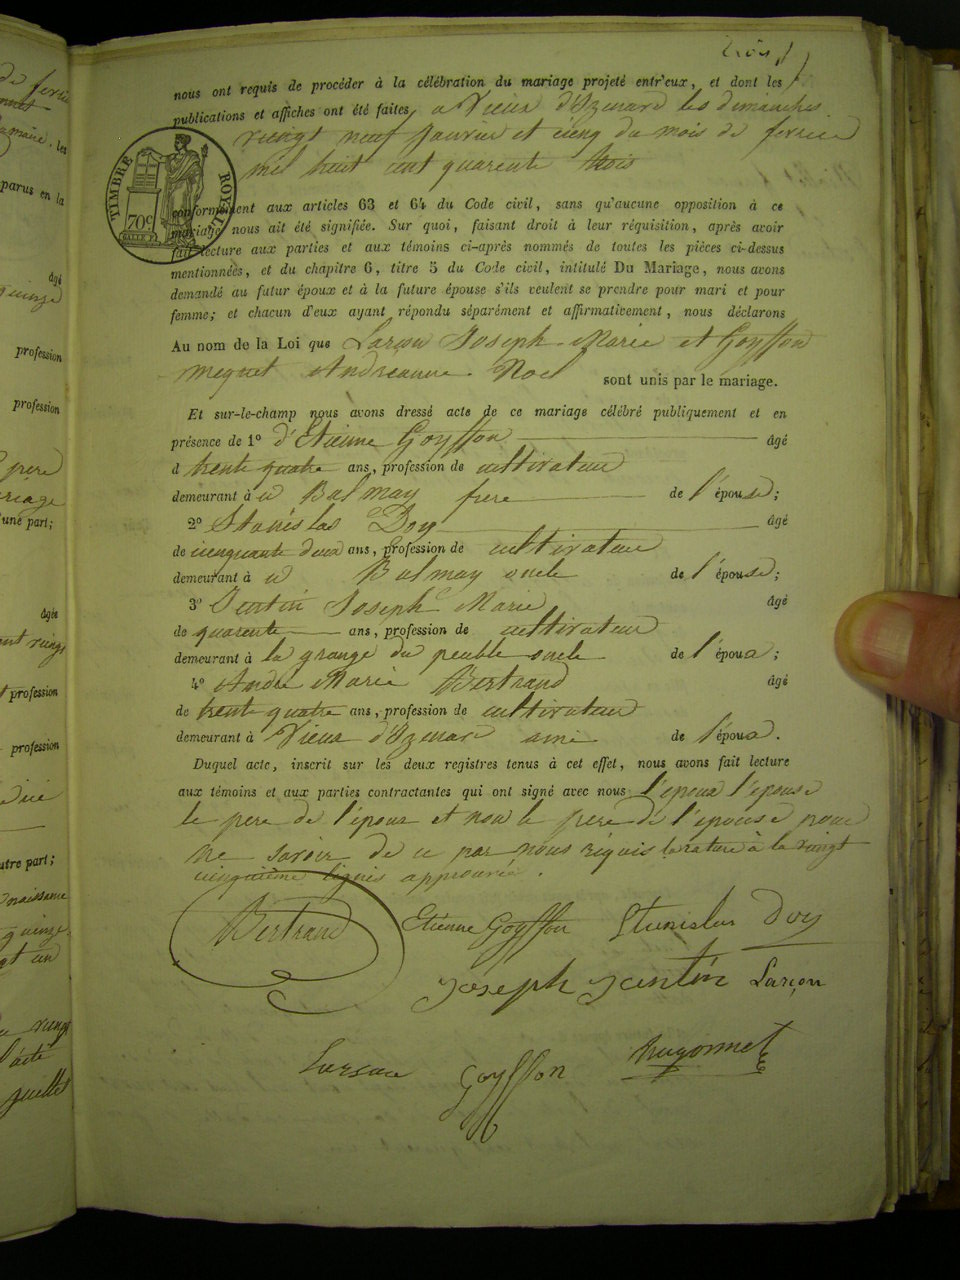 trois
nous ont requis de procéder à la célébration du mariage projeté entr'eux, et dont les
publications et affiches ont été faites, a Vieux d'Izenave les dimanches
vingt neuf Janvier et cinq du mois de fevrier
mil huit cent quarente trois
TIMBRE ROYAL
70c
conformément aux articles 63 et 64 du Code civil, sans qu'aucune opposition à ce
mariage nous ait été signifiée. Sur quoi, faisant droit à leur réquisition, après avoir
fait lecture aux parties et aux témoins ci-après nommés de toutes les pièces ci-dessus
mentionnées, et du chapitre 6, titre 5 du Code civil, intitulé Du Mariage, nous avons
demandé au futur époux et à la future épouse s'ils veulent se prendre pour mari et pour
femme; et chacun d'eux ayant répondu séparément et affirmativement, nous déclarons
Au nom de la Loi que Larçon Joseph Marie et Goyffon
Andréanne Noel sont unis par le mariage.
Et sur-le-champ nous avons dressé acte de ce mariage célébré publiquement et en
présence de 1o d'Etienne Goyffon âgé
d trente quatre ans, profession de cultivateur
demeurant à a Balmay frere de l'épouse;
2o Stanislas Doy âgé
de cinquante deux ans, profession de cultivateur
demeurant à a Balmay oncle de l'épouse;
3o Jantin Joseph Marie âgé
de quarente ans, profession de cultivateur
demeurant à la grange du peuble oncle de l'époux;
4o André Marie Bertrand âgé
de trente quatre ans, profession de cultivateur
demeurant à Vieux d'Izenave ami de l'époux.
Duquel acte, inscrit sur les deux registres tenus à cet effet, nous avons fait lecture
aux témoins et aux parties contractantes qui ont signé avec nous l'époux l'épouse
le pere de l'époux et non le pere de l'épouse pour
ne savoir de ce par nous réquis la rature à la vingt
cinquième lignes approuvée.
Bertrand Etienne Goyffon Stanislas Doy
Joseph Jantin Larçon
Larçon Goyffon hugonnet